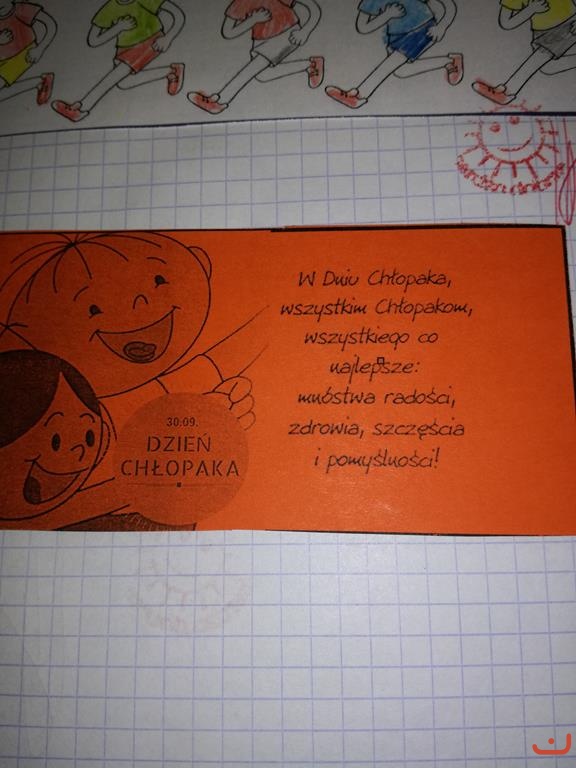 30.09.
DZIEŃ
CHŁOPAKA
W Dniu Chłopaka,
wszystkim Chłopakom,
wszystkiego co
najlepsze:
mnóstwa radości,
zdrowia, szczęścia
i pomyślności!